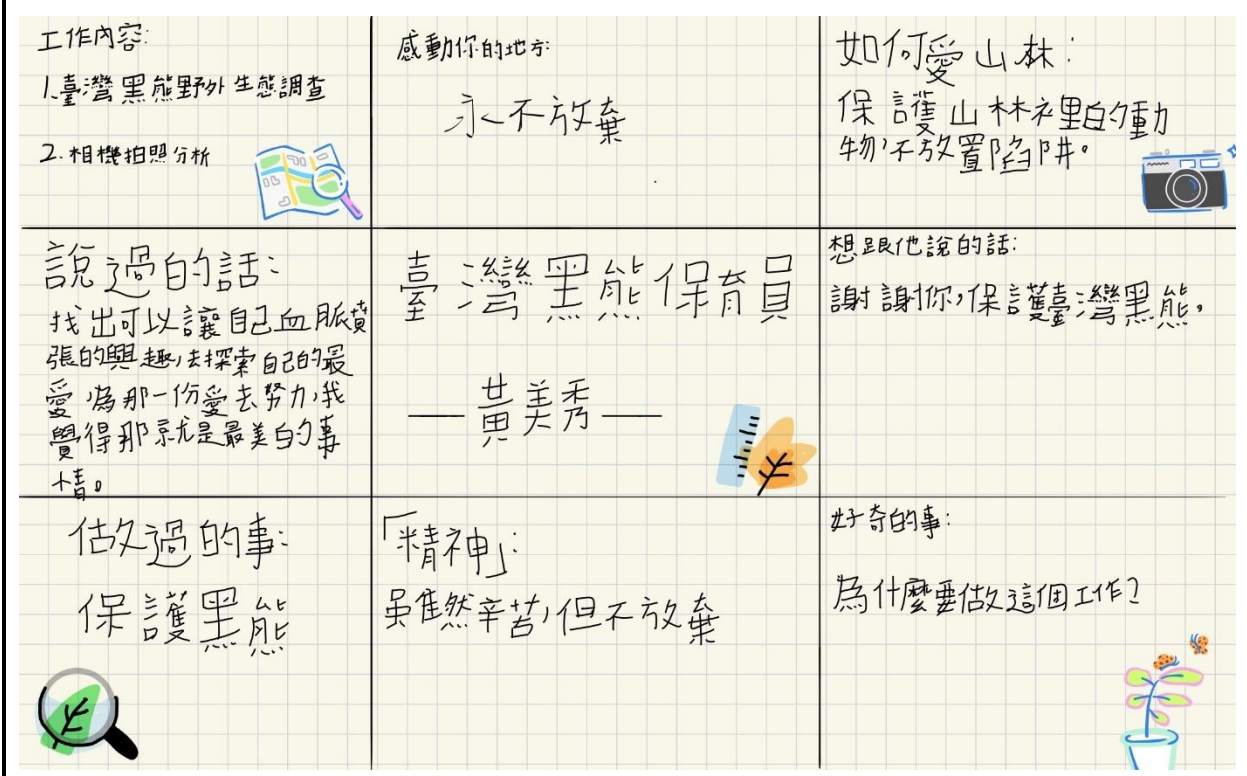 工作內容:
1.臺灣黑熊野外生態調查
2.相機拍照分析
感動你的地方:
永不放棄
如何愛山林:
保護山林裡的動
物,不放置陷阱。
說過的話:
找出可以讓自己血脈噴
張的興趣,去探索自己的最
愛,為那一份愛去努力,我
覺得那就是最美的事
情。
臺灣黑熊保育員
——黃美秀——
想跟他說的話:
謝謝你,保護臺灣黑熊。
做過的事:
保護黑熊
「精神」:
雖然辛苦,但不放棄
好奇的事:
為什麼要做這個工作?